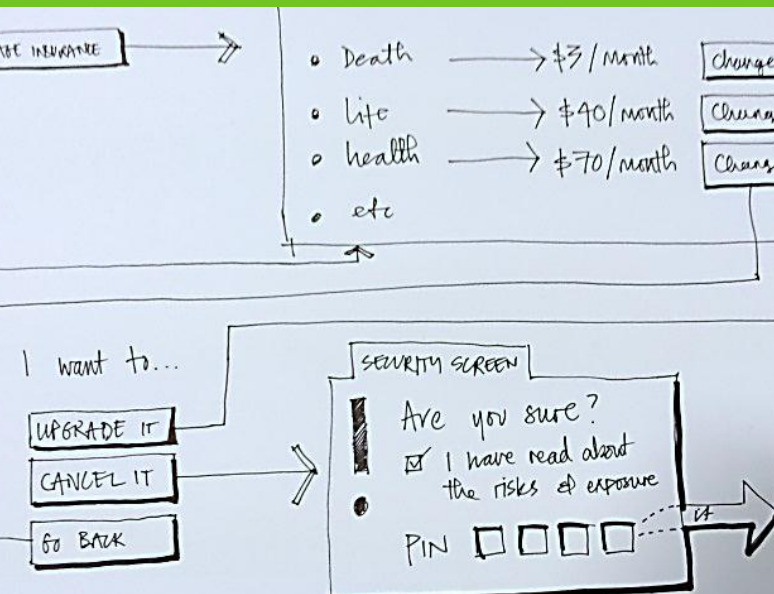 INSURANCE
Death $3/month Change
Life $40/month
health $70/month
etc
I want to...
UPGRADE IT
CANCEL IT
GO BACK
SECURITY SCREEN
Are you sure?
I have read about
the risks & exposure
PIN